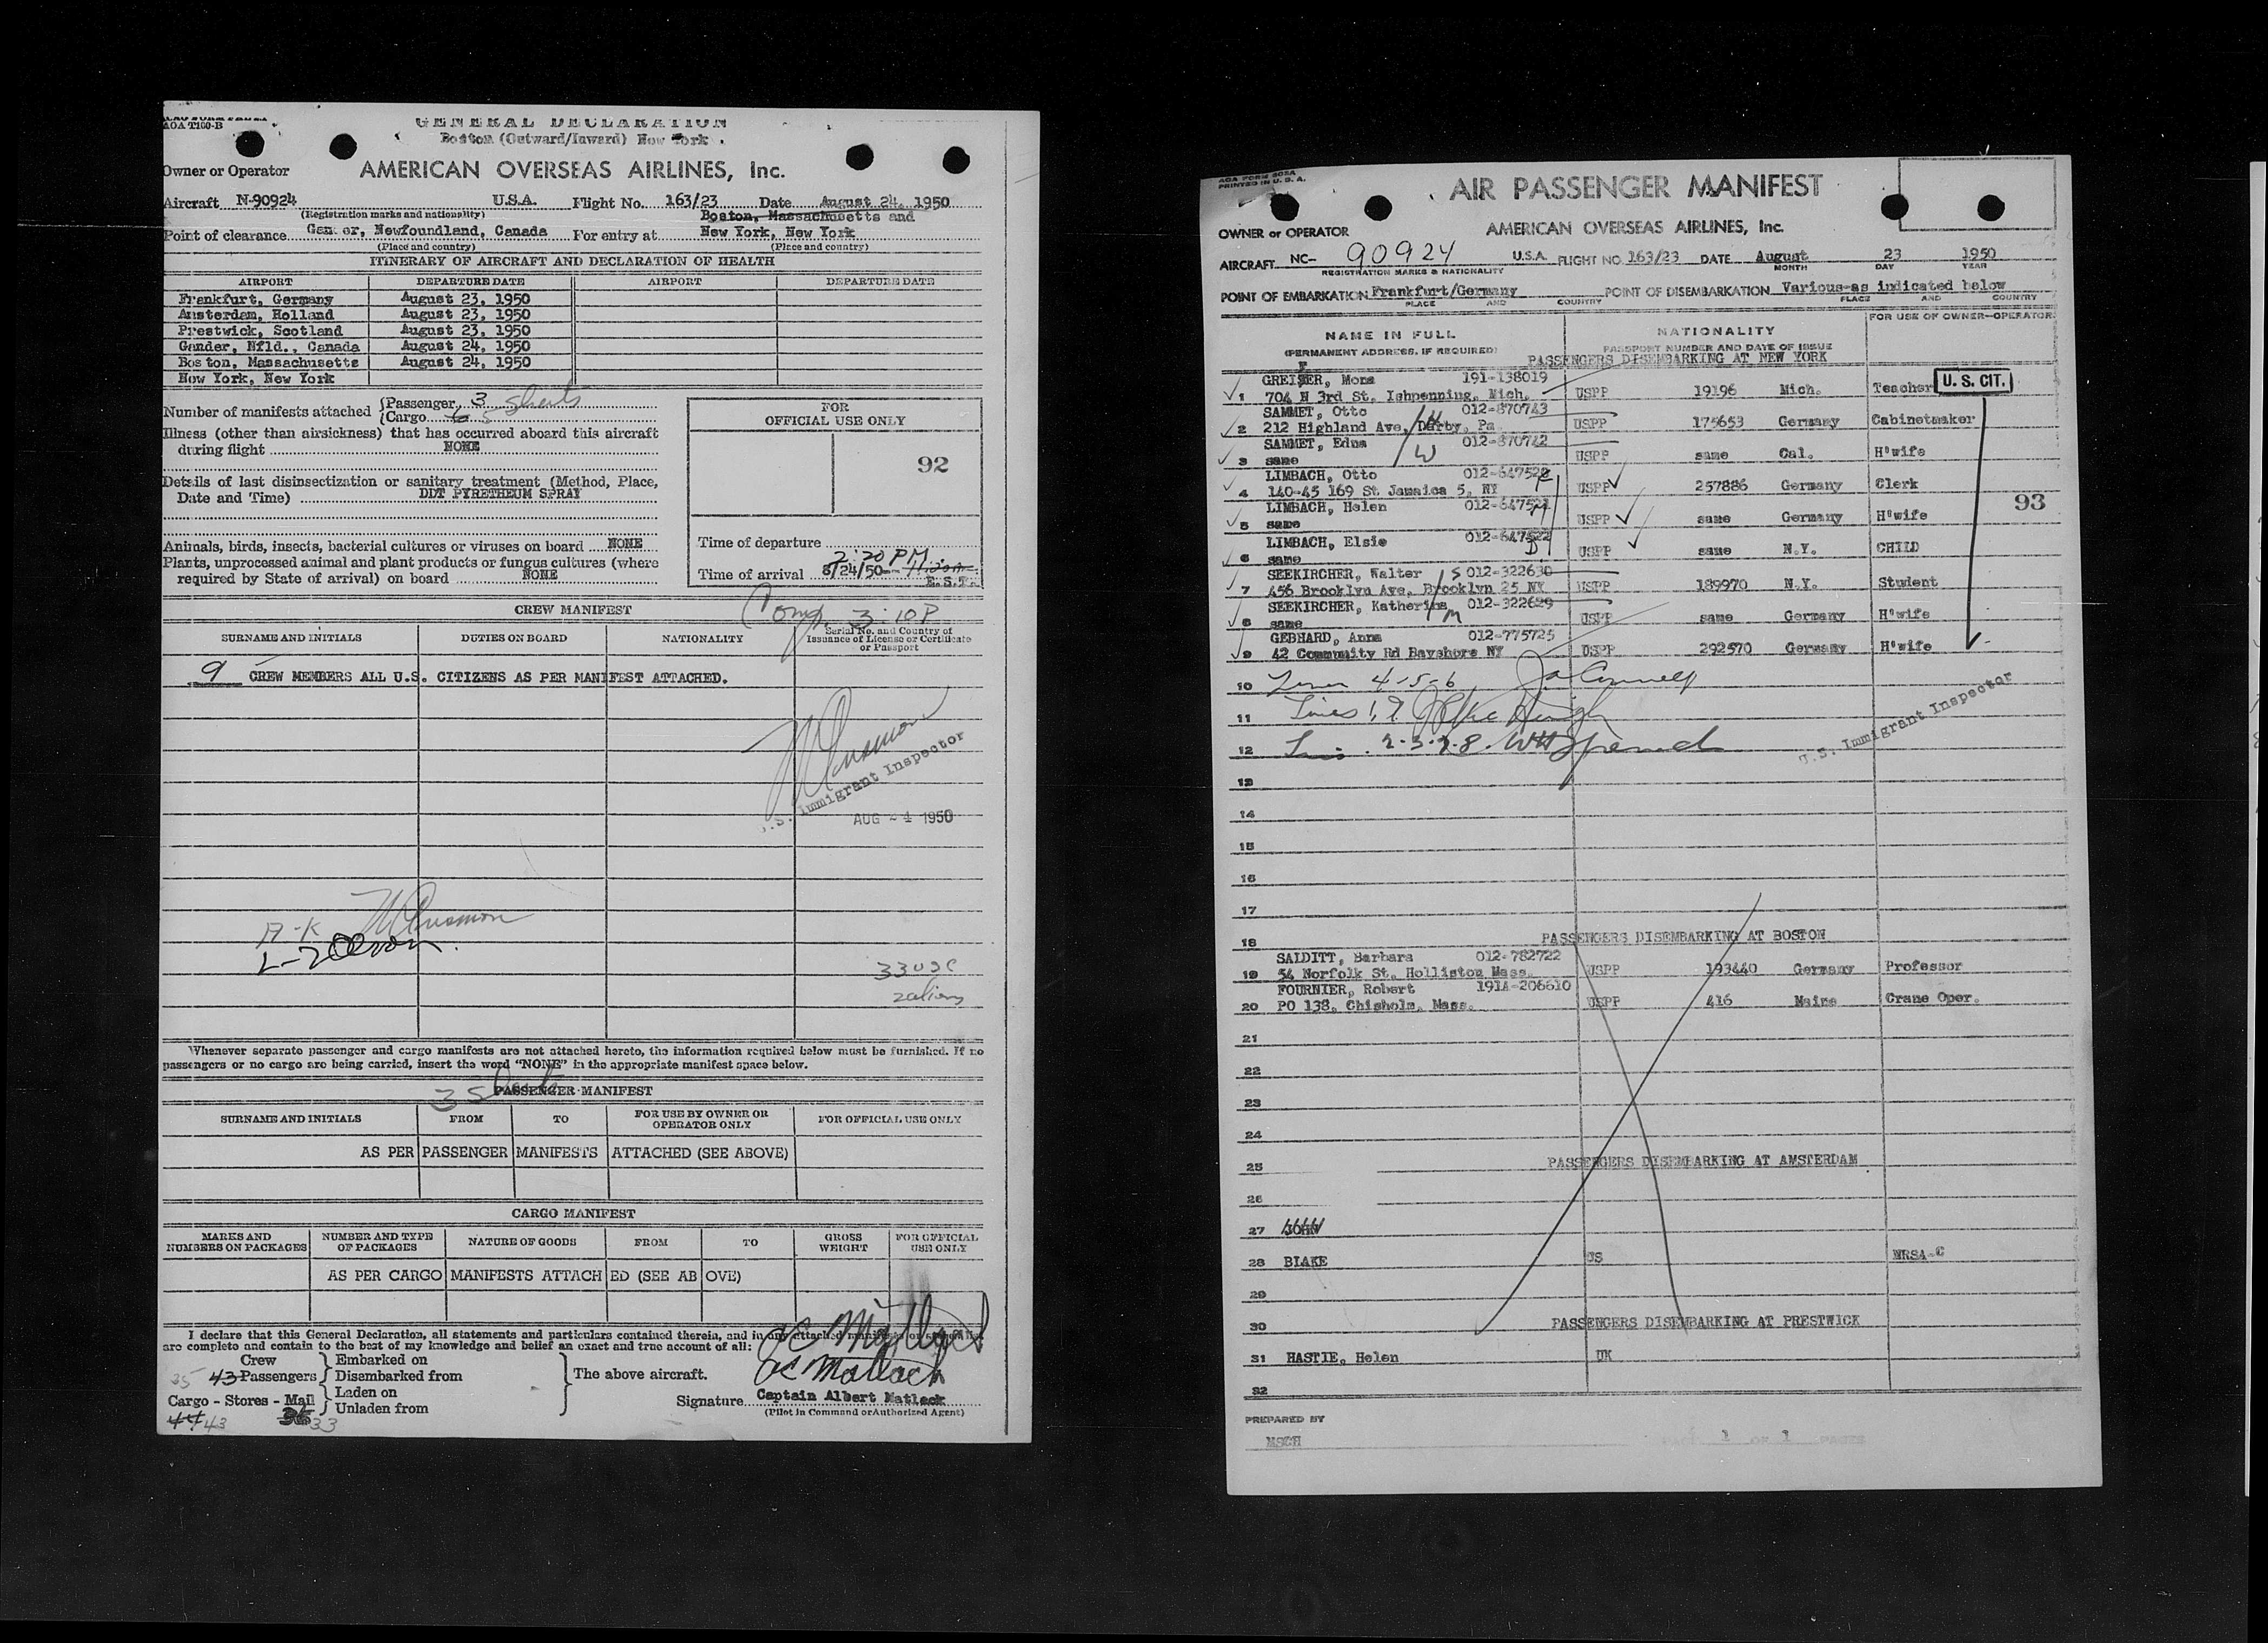 AOA T100-B
GENERAL DECLARATION
Boston (Outward/Inward) New York
Owner or Operator AMERICAN OVERSEAS AIRLINES, Inc.
Aircraft N-90924 U.S.A. Flight No. 163/23 Date August 24, 1950
(Registration marks and nationality) Boston, Massachusetts and
Point of clearance Gander, Newfoundland, Canada For entry at New York, New York
(Place and country) (Place and country)
ITINERARY OF AIRCRAFT AND DECLARATION OF HEALTH
AIRPORT DEPARTURE DATE AIRPORT DEPARTURE DATE
Frankfurt, Germany August 23, 1950
Amsterdam, Holland August 23, 1950
Prestwick, Scotland August 23, 1950
Gander, Nfld., Canada August 24, 1950
Boston, Massachusetts August 24, 1950
New York, New York
Number of manifests attached Passenger 3 sheets
Cargo 6 5
Illness (other than airsickness) that has occurred aboard this aircraft
during flight NONE
Details of last disinsectization or sanitary treatment (Method, Place,
Date and Time) DDT PYRETHEUM SPRAY
Animals, birds, insects, bacterial cultures or viruses on board NONE
Plants, unprocessed animal and plant products or fungus cultures (where
required by State of arrival) on board NONE
FOR
OFFICIAL USE ONLY
92
Time of departure
2:20 PM
Time of arrival 8/24/50
E.S.T.
Comp. 3:10P
CREW MANIFEST
SURNAME AND INITIALS DUTIES ON BOARD NATIONALITY Serial No. and Country of
Issuance of License or Certificate
or Passport
9 CREW MEMBERS ALL U.S. CITIZENS AS PER MANIFEST ATTACHED.
U.S. Immigrant Inspector
AUG 24 1950
A-K
33 USC
2 aliens
Whenever separate passenger and cargo manifests are not attached hereto, the information required below must be furnished. If no
passengers or no cargo are being carried, insert the word "NONE" in the appropriate manifest space below.
3 Sheets
PASSENGER MANIFEST
SURNAME AND INITIALS FROM TO FOR USE BY OWNER OR
OPERATOR ONLY FOR OFFICIAL USE ONLY
AS PER PASSENGER MANIFESTS ATTACHED (SEE ABOVE)
CARGO MANIFEST
MARKS AND
NUMBERS ON PACKAGES NUMBER AND TYPE
OF PACKAGES NATURE OF GOODS FROM TO GROSS
WEIGHT FOR OFFICIAL
USE ONLY
AS PER CARGO MANIFESTS ATTACHED (SEE ABOVE)
I declare that this General Declaration, all statements and particulars contained therein, and in any attached manifests
are complete and contain to the best of my knowledge and belief an exact and true account of all:
Crew Embarked on
35 43 Passengers Disembarked from The above aircraft.
Cargo - Stores - Mail Laden on
Unladen from
AC Matlack
AC Matlack
Signature Captain Albert Matlack
(Pilot in Command or Authorized Agent)
44 43 33
AOA FORM 505A
PRINTED IN U.S.A.
AIR PASSENGER MANIFEST
OWNER or OPERATOR AMERICAN OVERSEAS AIRLINES, Inc.
AIRCRAFT NC- 90924 U.S.A. FLIGHT NO. 163/23 DATE August 23 1950
REGISTRATION MARKS & NATIONALITY MONTH DAY YEAR
POINT OF EMBARKATION Frankfurt/Germany POINT OF DISEMBARKATION Various-as indicated below
PLACE AND COUNTRY PLACE AND COUNTRY
NAME IN FULL NATIONALITY FOR USE OF OWNER-OPERATOR
(PERMANENT ADDRESS, IF REQUIRED) PASSPORT NUMBER AND DATE OF ISSUE
PASSENGERS DISEMBARKING AT NEW YORK
GREISER, Mona 191-138019
1 704 N 3rd St. Ishpenning, Mich. USPP 19196 Mich. Teacher U. S. CIT.
SAMMET, Otto 012-870743
2 212 Highland Ave, Darby, Pa H USPP 175653 Germany Cabinetmaker
SAMMET, Edna 012-870742
3 same W USPP same Cal. H'wife
LIMBACH, Otto 012-647522
4 140-45 169 St Jamaica 5, NY USPP 257886 Germany Clerk
LIMBACH, Helen 012-647521
5 same M USPP same Germany H'wife
93
LIMBACH, Elsie 012-647522
6 same D USPP same N.Y. CHILD
SEEKIRCHER, Walter S 012-322630
7 456 Brooklyn Ave, Brooklyn 25 NY USPP 189970 N.Y. Student
SEEKIRCHER, Katherina 012-322629
8 same M USPP same Germany H'wife
GEBHARD, Anna 012-775725
9 42 Community Rd Bayshore NY USPP 292570 Germany H'wife
10 Lines 4-5-6
11 Lines 1,9
12 Lines 2-3-7-8
U.S. Immigrant Inspector
13
14
15
16
17
18 PASSENGERS DISEMBARKING AT BOSTON
SALDITT, Barbara 012-782722
19 54 Norfolk St. Holliston Mass. USPP 193440 Germany Professor
FOURNIER, Robert 191A-206610
20 PO 138, Chisholm, Mass. USPP 416 Maine Crane Oper.
21
22
23
24
25 PASSENGERS DISEMBARKING AT AMSTERDAM
26
27
28 BLAKE US MRSA-C
29
30 PASSENGERS DISEMBARKING AT PRESTWICK
31 HASTIE, Helen UK
32
PREPARED BY
MSCH PAGE 1 OF 1 PAGES